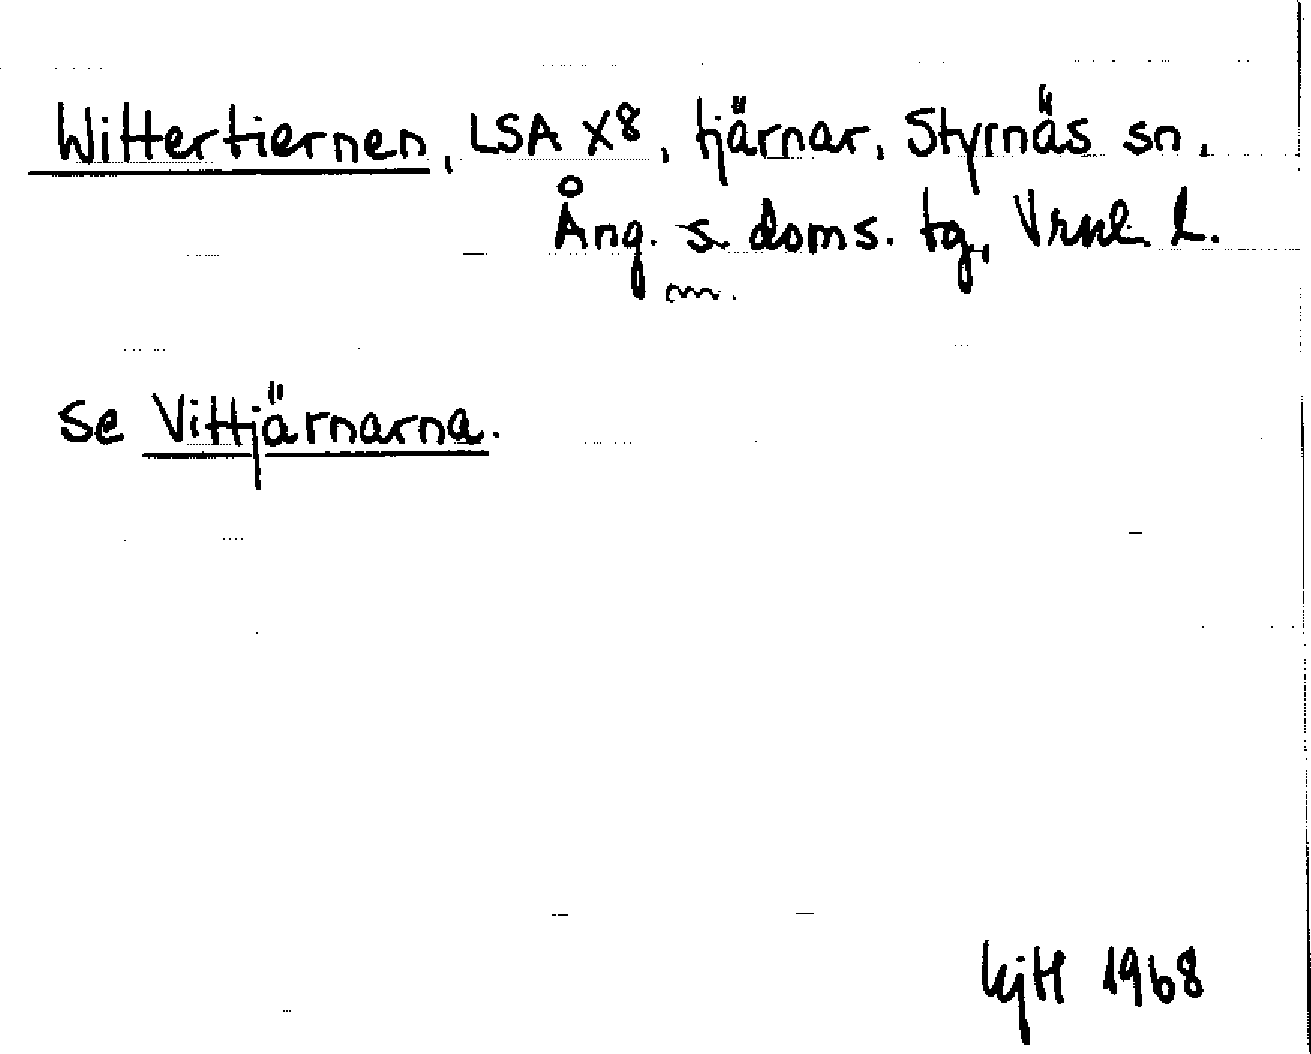 Wittertiernen, LSA X8, tjärnar, Styrnäs sn,
Ång. s. doms. tg, Vrnl. l.
m.
Se Vittjärnarna.
KjH 1968